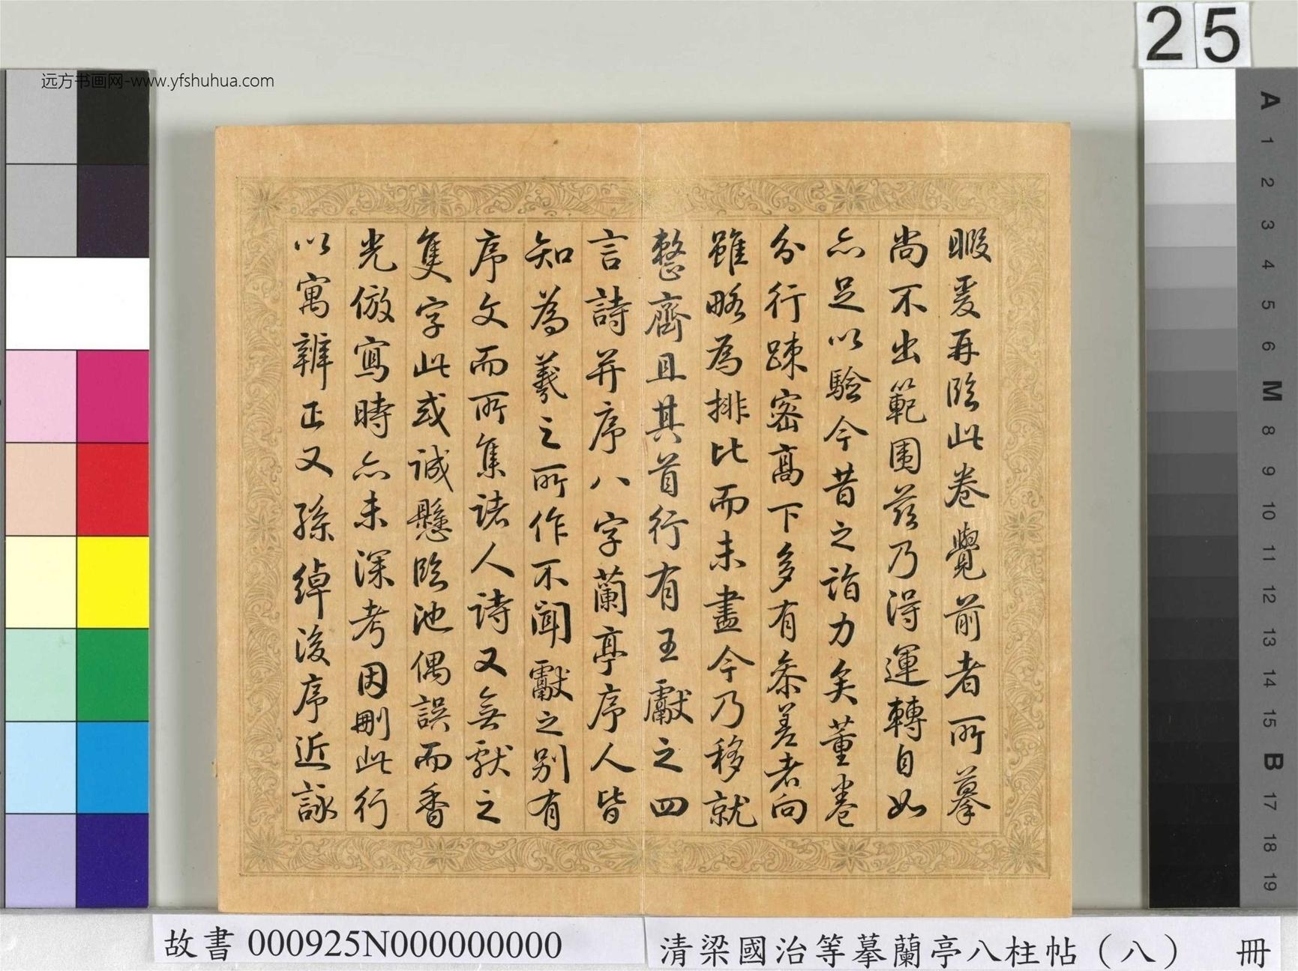 25
远方书画网-www.yfshuhua.com
暇爰再臨此卷覺前者所摹
尚不出範圍茲乃得運轉自如
亦足以驗今昔之詣力矣董卷
分行疎密高下多有叅差者向
雖略為排比而未盡今乃移就
整齊且其首行有王獻之四
言詩并序八字蘭亭序人皆
知為羲之所作不聞獻之别有
序文而所集諸人詩又無獻之
隻字此或誠懸臨池偶誤而香
光倣寫時亦未深考因刪此行
以寓辨正又孫綽後序近詠
A
1
2
3
4
5
6
M
8
9
10
11
12
13
14
15
B
17
18
19
故書 000925N000000000
清梁國治等摹蘭亭八柱帖（八） 冊